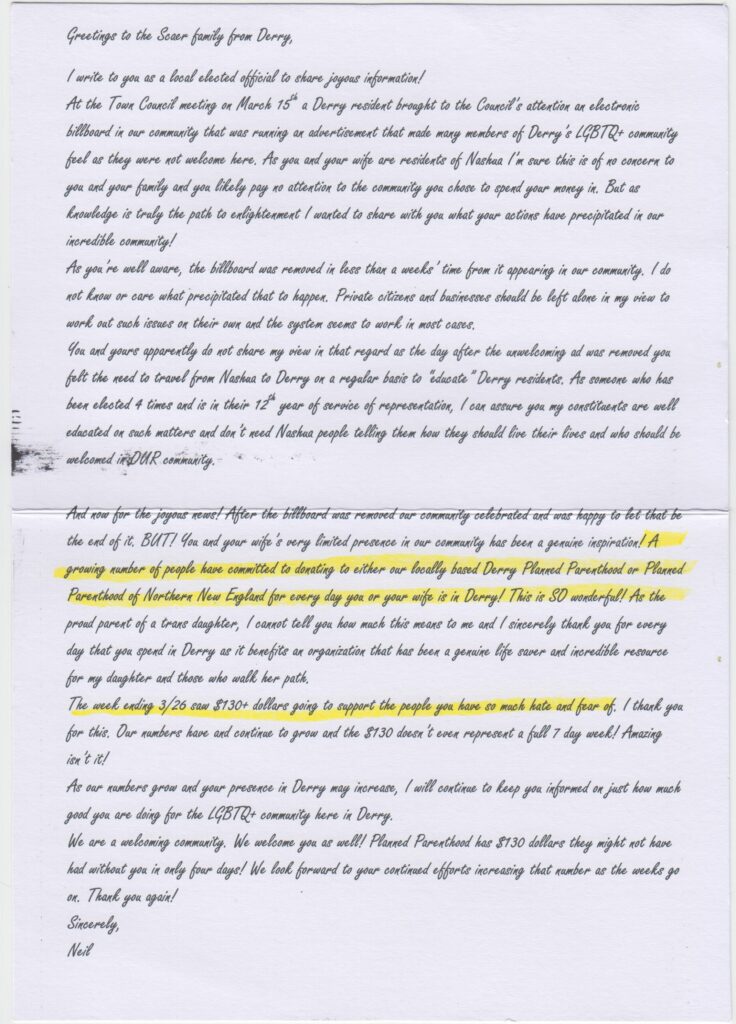 Greetings to the Scaer family from Derry,
I write to you as a local elected official to share joyous information!
At the Town Council meeting on March 15th a Derry resident brought to the Council's attention an electronic
billboard in our community that was running an advertisement that made many members of Derry's LGBTQ+ community
feel as they were not welcome here. As you and your wife are residents of Nashua I'm sure this is of no concern to
you and your family and you likely pay no attention to the community you chose to spend your money in. But as
knowledge is truly the path to enlightenment I wanted to share with you what your actions have precipitated in our
incredible community!
As you're well aware, the billboard was removed in less than a weeks' time from it appearing in our community. I do
not know or care what precipitated that to happen. Private citizens and businesses should be left alone in my view to
work out such issues on their own and the system seems to work in most cases.
You and yours apparently do not share my view in that regard as the day after the unwelcoming ad was removed you
felt the need to travel from Nashua to Derry on a regular basis to "educate" Derry residents. As someone who has
been elected 4 times and is in their 12th year of service of representation, I can assure you my constituents are well
educated on such matters and don't need Nashua people telling them how they should live their lives and who should be
welcomed in OUR community.
And now for the joyous news! After the billboard was removed our community celebrated and was happy to let that be
the end of it. BUT! You and your wife's very limited presence in our community has been a genuine inspiration! A
growing number of people have committed to donating to either our locally based Derry Planned Parenthood or Planned
Parenthood of Northern New England for every day you or your wife is in Derry! This is SO wonderful! As the
proud parent of a trans daughter, I cannot tell you how much this means to me and I sincerely thank you for every
day that you spend in Derry as it benefits an organization that has been a genuine life saver and incredible resource
for my daughter and those who walk her path.
The week ending 3/26 saw $130+ dollars going to support the people you have so much hate and fear of. I thank you
for this. Our numbers have and continue to grow and the $130 doesn't even represent a full 7 day week! Amazing
isn't it!
As our numbers grow and your presence in Derry may increase, I will continue to keep you informed on just how much
good you are doing for the LGBTQ+ community here in Derry.
We are a welcoming community. We welcome you as well! Planned Parenthood has $130 dollars they might not have
had without you in only four days! We look forward to your continued efforts increasing that number as the weeks go
on. Thank you again!
Sincerely,
Neil